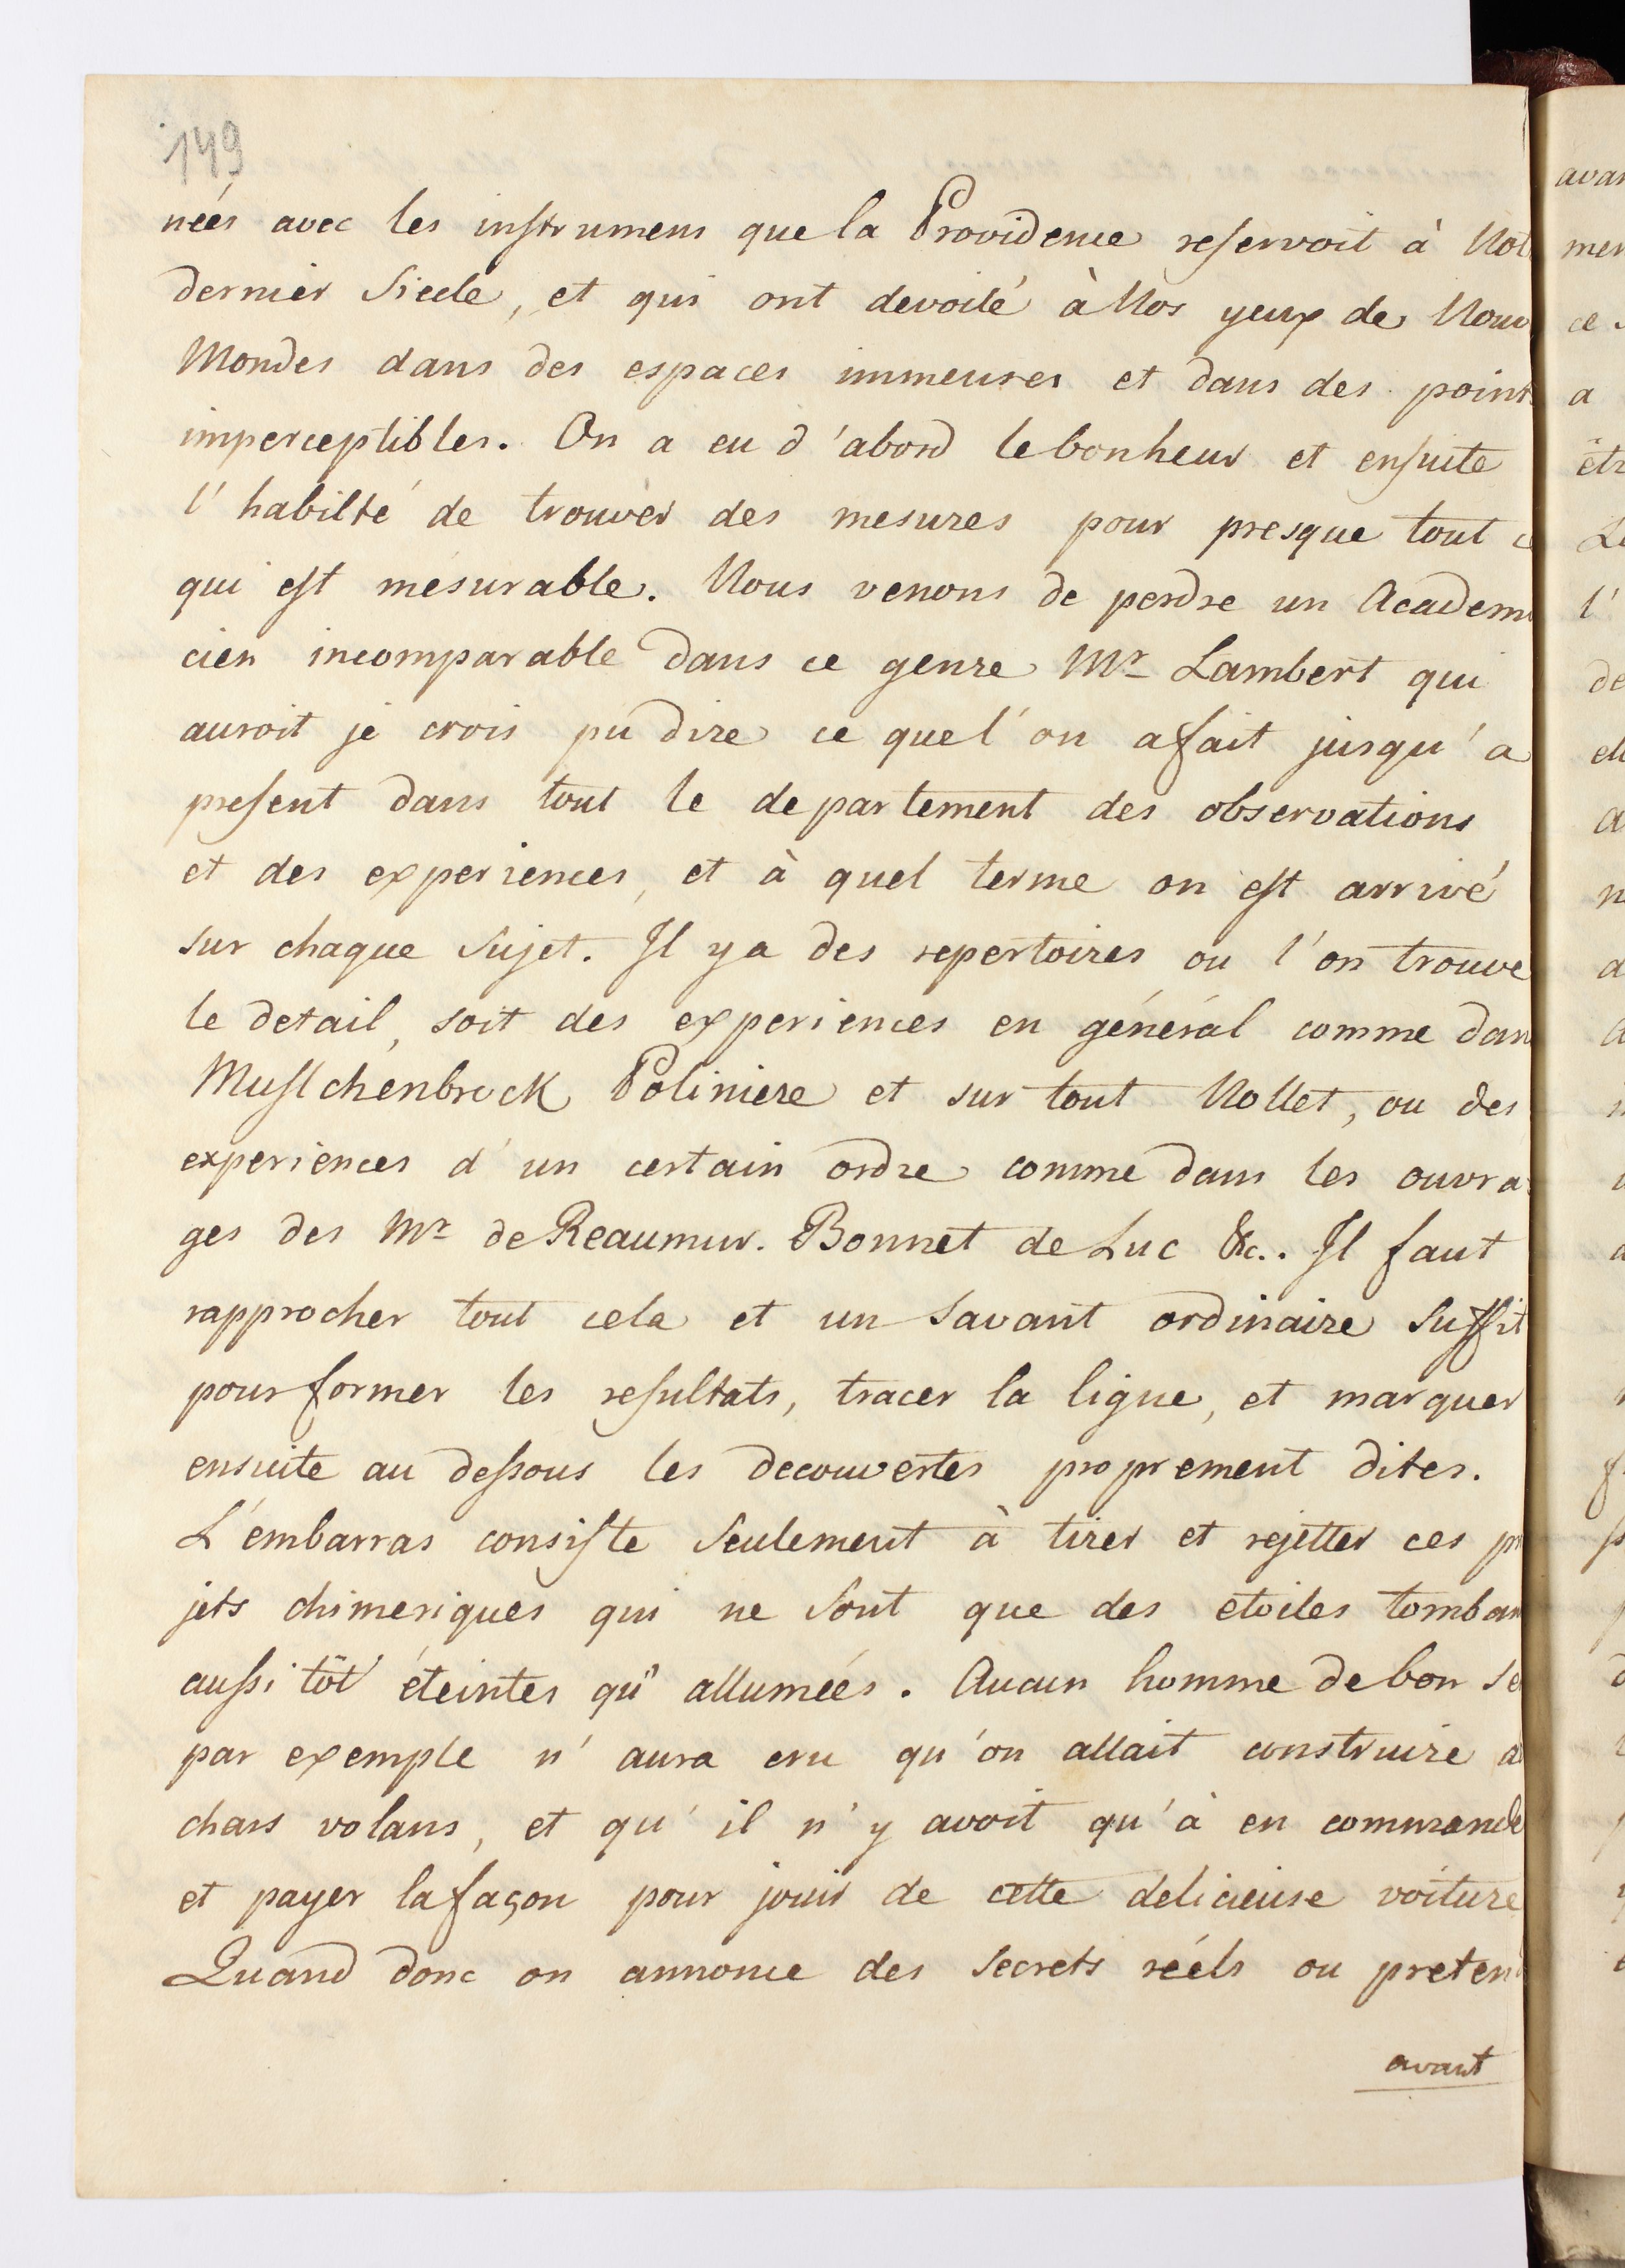 149
néés avec les instrumens que la Providence reservoit à Not
dernier Siecle, et qui ont devoilé à Nos yeux de Nouv
Mondes dans des espaces immenses et dans des point
imperceptibles. On a eu d'abord le bonheur et ensuite
l'habilté de trouver des mesures pour presque tout c
qui est mésurable. Nous venons de perdre un Academi
cien incomparable dans ce genre Mr Lambert qui
auroit je crois pu dire ce que l'on a fait jusqu'a
present dans tout le departement des observations
et des experiences, et à quel terme on est arrivé
sur chaque Sujet. Il y a des repertoires ou l'on trouve
le detail, soit des experiences en général comme dan
Musschenbrock Poliniere et sur tout Nollet, ou des
experiences d'un certain ordre comme dans les ouvra
ges des Mr de Reaumur. Bonnet de Luc &c.. Il faut
rapprocher tout cela et un Savant ordinaire Suffit
pour former les resultats, tracer la ligne, et marquer
ensuite au dessous les decouvertes proprement dites.
L'embarras consiste Seulement à tirer et rejetter ces pr
jets chimeriques qui ne Sont que des etoiles tomban
aussi tôt éteintes qu'allumées. Aucun homme de bon se
par exemple n'aura cru qu'on allait construire a
chars volans, et qu'il n'y avoit qu'à en commande
et payer la façon pour jouir de cette delicieuse voiture
Quand donc on annonce des Secrets réels ou preten
avant
avan
mer
ce
a
êtr
l'
de